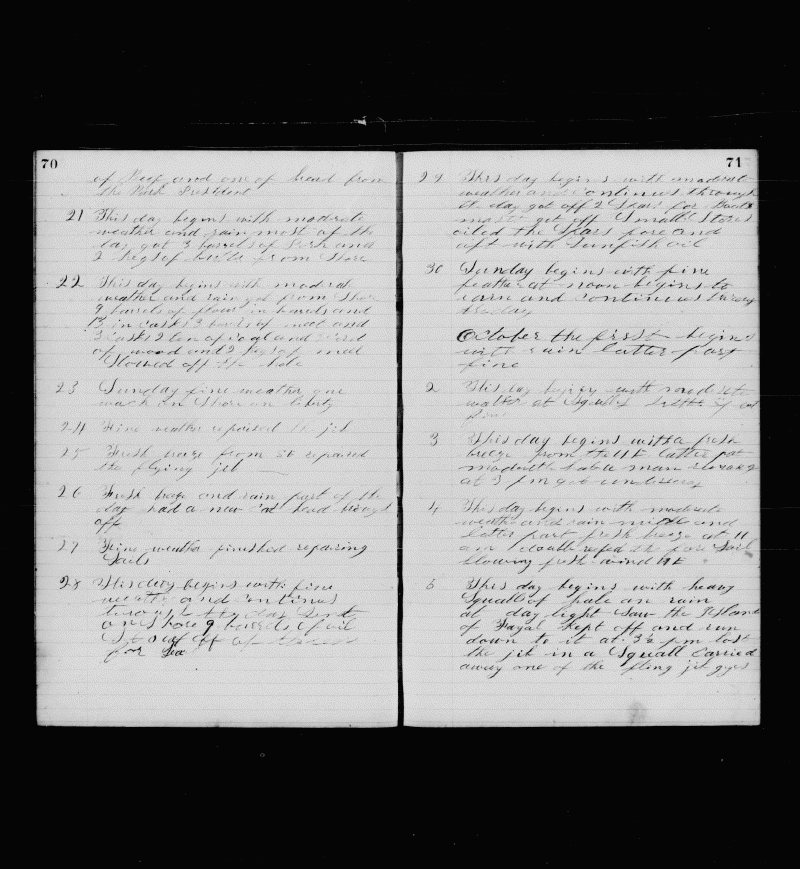 70
of Beef and one of bread from
the Bark President
21 This day begins with moderate
weather and rain most of the
day got 3 barrels of Pork and
2 kegs of from Shore
22 This day begins with modrat
weather and rain got from Shore
9 barrels of flour in barels and
13 in casks 3 barels of meal and
3 casks 2 ton of coal and
of wood and 2 kegs of
Stowed off the hole
23 Sunday fine weather one
wach on Shore on liberty
24 Fine weather repaired the jib
25 Fresh breze from SE repared
the flying jib
26 Fresh breze and rain part of the
day had a new Cat head brought
off
27 Fine weather finished repairing
Sails
28 This day begins with fine
weather and continues
through the day Sent
on shore 9 barrels of oil
for Sea
71
29 This day begins with moderat
weather and continues through
the day got off 2 Spars for Boats
masts got off Small Stores
oiled the Spars fore and
aft with Sunfish oil
30 Sunday begins with fine
weather at noon begins to
rain and continues
the day
October the first begins
with rain latter part
fine
2 This day begins with moderate
weather at Squalls latter
fine
3 This day begins with a fresh
breeze from the latter pat
modrate
at 3 pm got underway
4 This day begins with moderate
weather and rain midle and
latter part fresh breeze at 11
am double refed the fore Sail
blowing fresh wind NE
5 This day begins with heavy
Squalls of hale an rain
at day light Saw the Island
of Fayal kept off and run
down to it at 3½ pm lost
the jib in a Squall carried
away one of the fling jib gyes